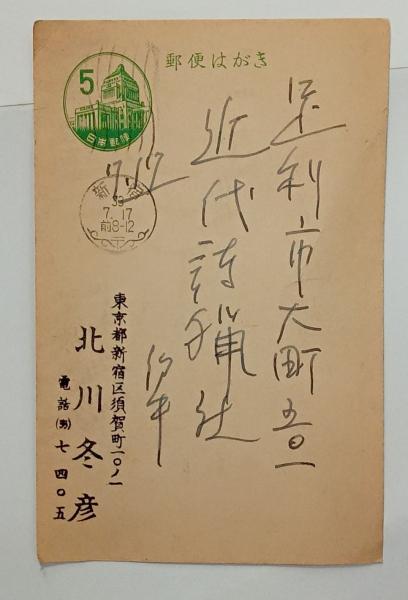 郵便はがき
5
日本郵便
新宿
39
7.17
前8-12
7.17
足利市大町五〇一
近代詩猟社
御中
東京都新宿区須賀町一〇ノ一
北川冬彦
電話(35)七四〇五